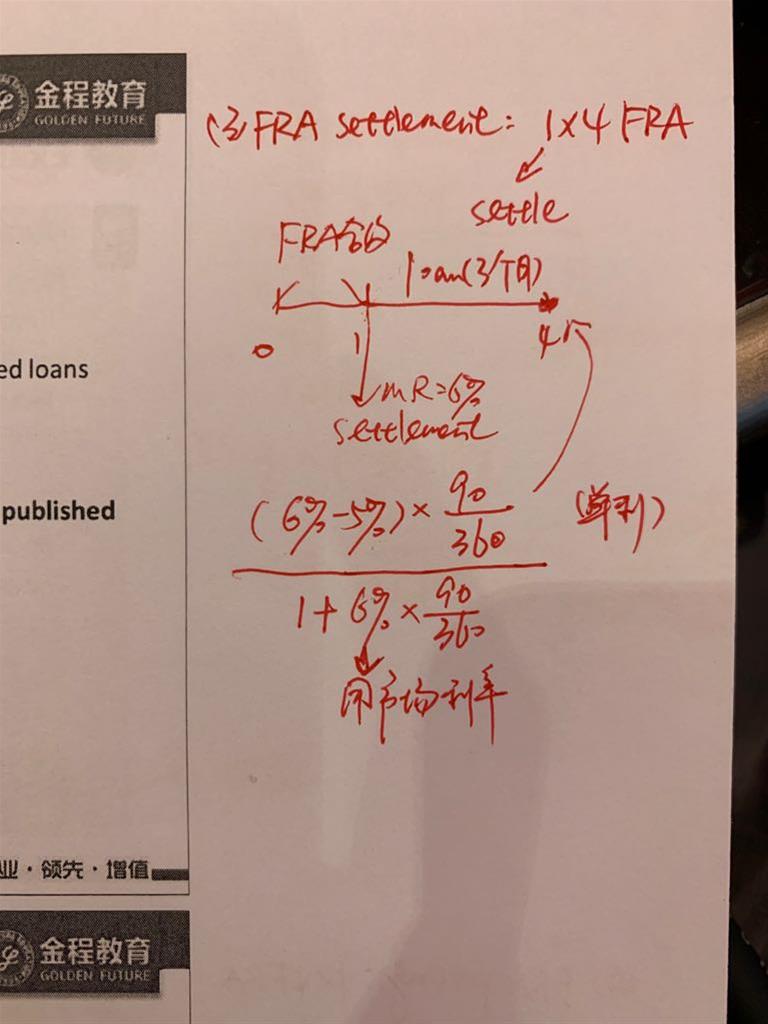 金程教育
GOLDEN FUTURE
ed loans
published
业·领先·增值
金程教育
GOLDEN FUTURE
(3) FRA settlement: 1×4 FRA
settle
FRA合约
loan(3个月)
0 1 4
mR=6%
settlement
(6%-5%)×90/360 (单利)
1+6%×90/360
用市场利率